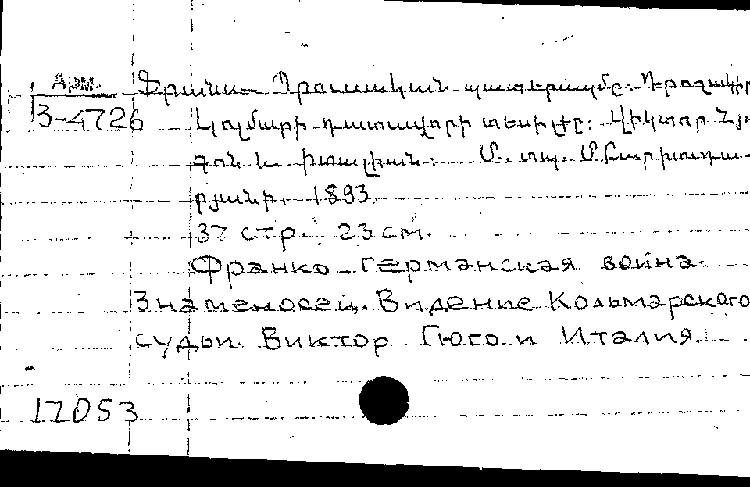 Арм.
3-4726
Ֆրանս-Պրուսական պատերազմը. Դրօշակիր
Կոլմարի դատաւորի տեսիլքը: Վիկտոր Հյու
գոն և Իտալիան. Մ. տպ. Մ. Բարխուդա-
րյանի. 1893.
37 стр. 23 см.
Франко-германская война.
Знаменосец. Видение Кольмарского
судьи. Виктор Гюго и Италия.
17053